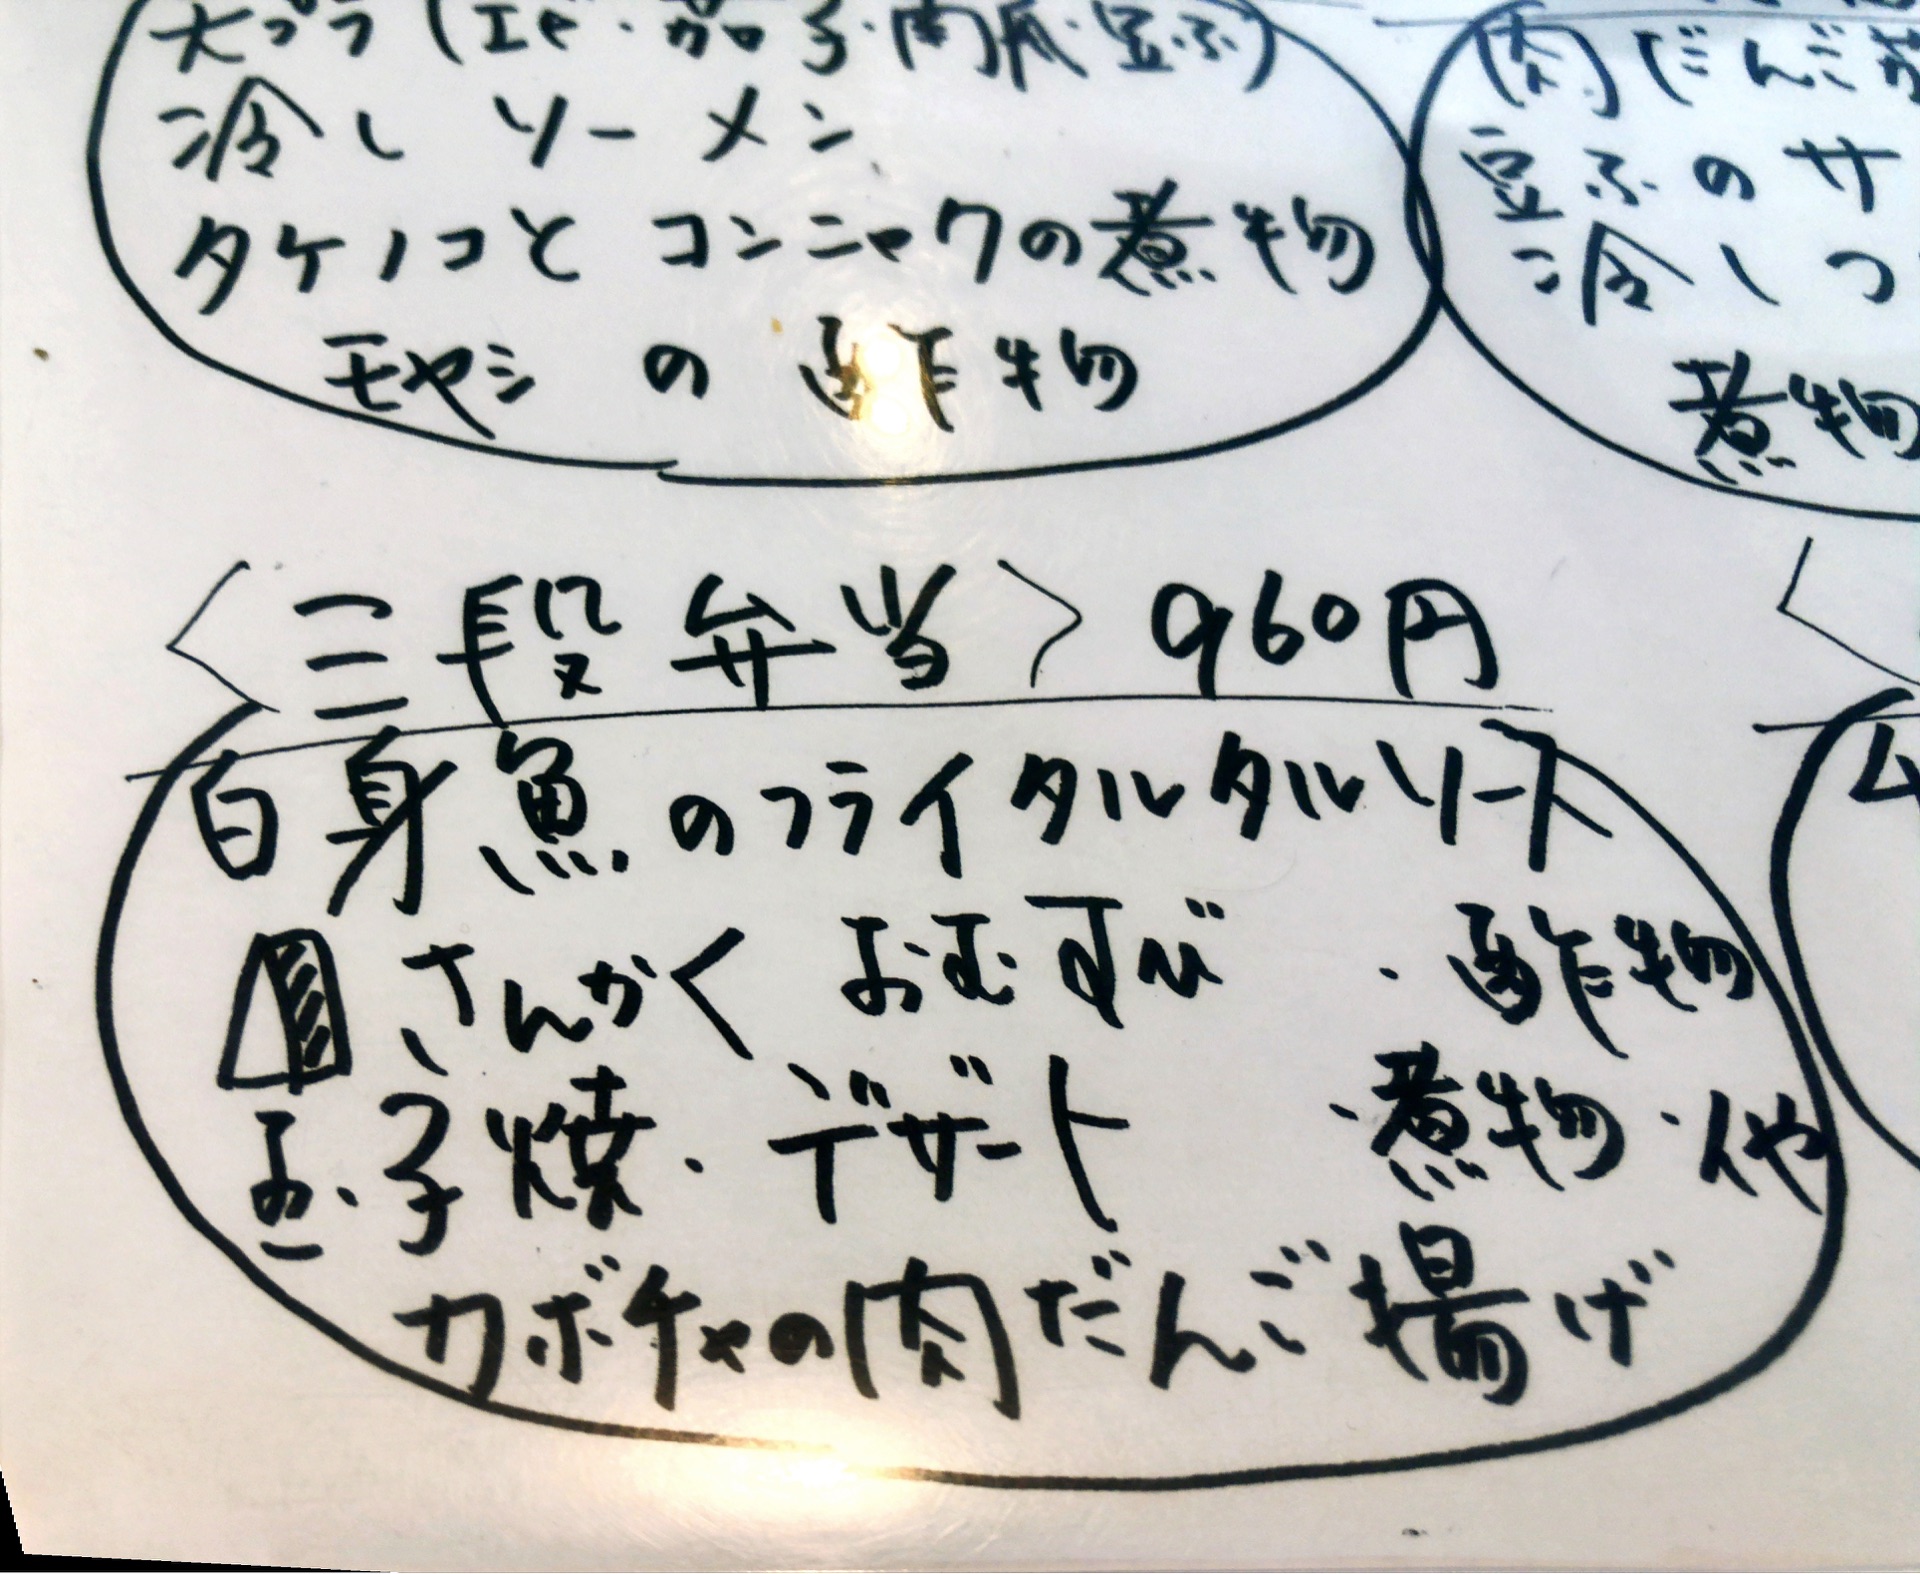 天プラ(エビ・茄子・南瓜・豆ふ)
冷しソーメン
タケノコとコンニャクの煮物
モヤシの酢物
肉だんご
豆ふのサ
冷しつ
煮物
〈三段弁当〉960円
白身魚のフライタルタルソース
さんかくおむすび・酢物
玉子焼・デザート・煮物・他
カボチャの肉だんご揚げ
ム